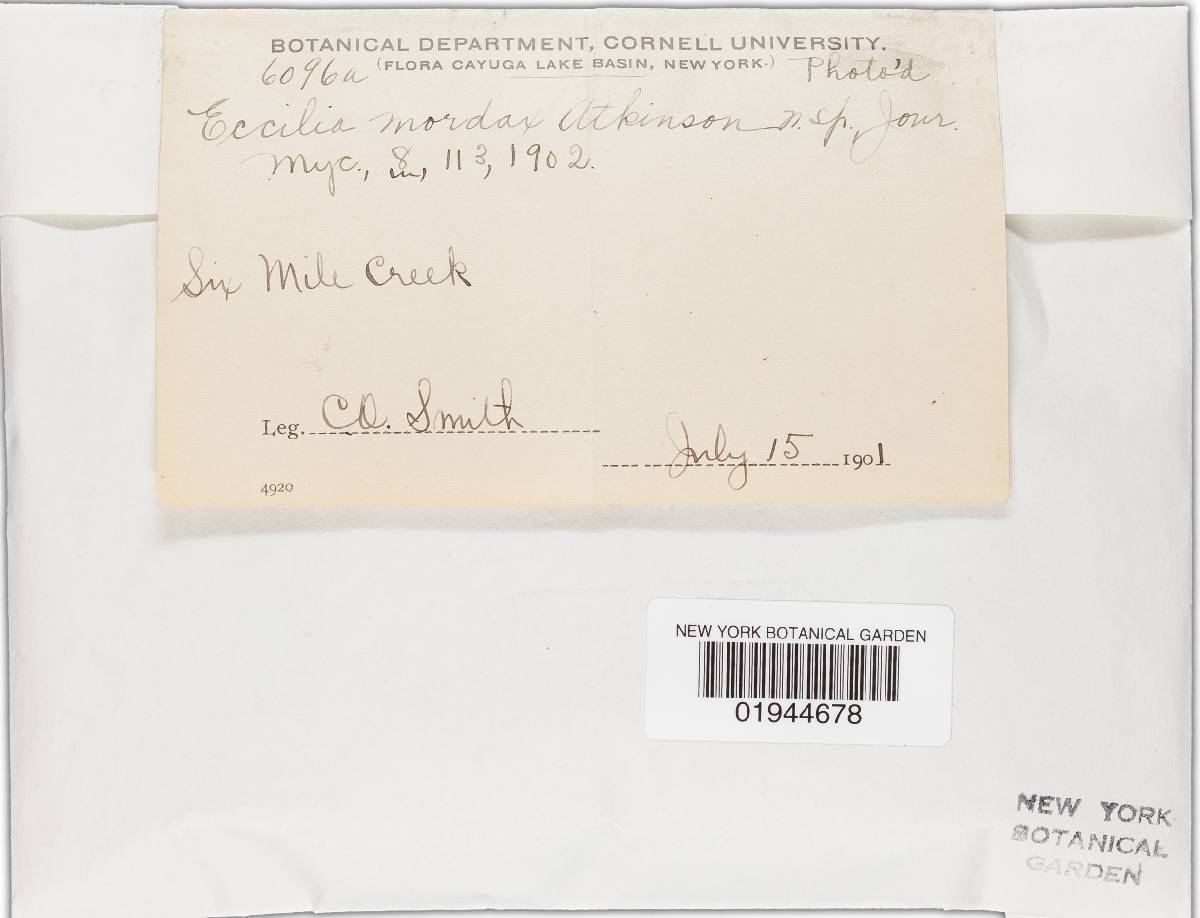 BOTANICAL DEPARTMENT, CORNELL UNIVERSITY.
6096a (FLORA CAYUGA LAKE BASIN, NEW YORK.) Photo'd
Eccilia mordax Atkinson n. sp., Jour.
Myc., 8, 113, 1902.
Six Mile Creek
Leg. C.O. Smith
July 15 1901
4920
NEW YORK BOTANICAL GARDEN
01944678
NEW YORK
BOTANICAL
GARDEN